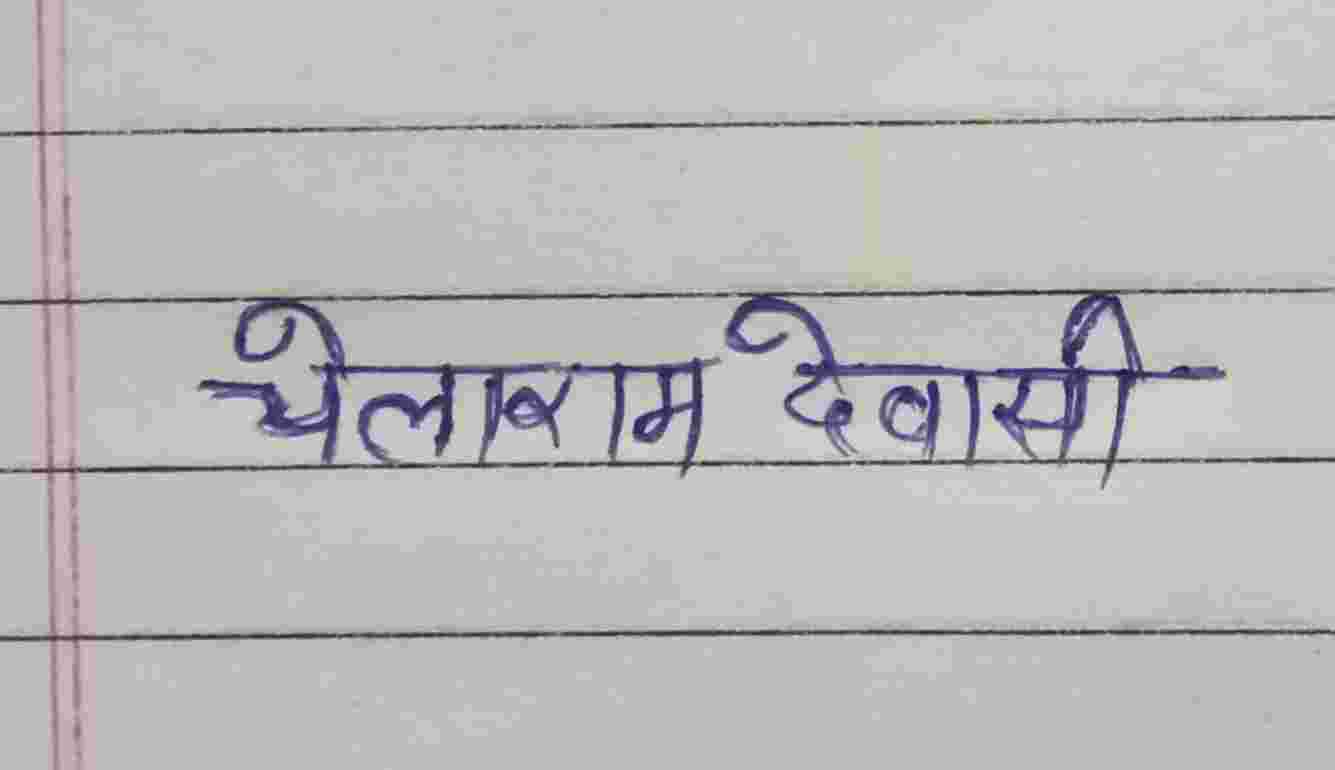 चेलाराम देवासी